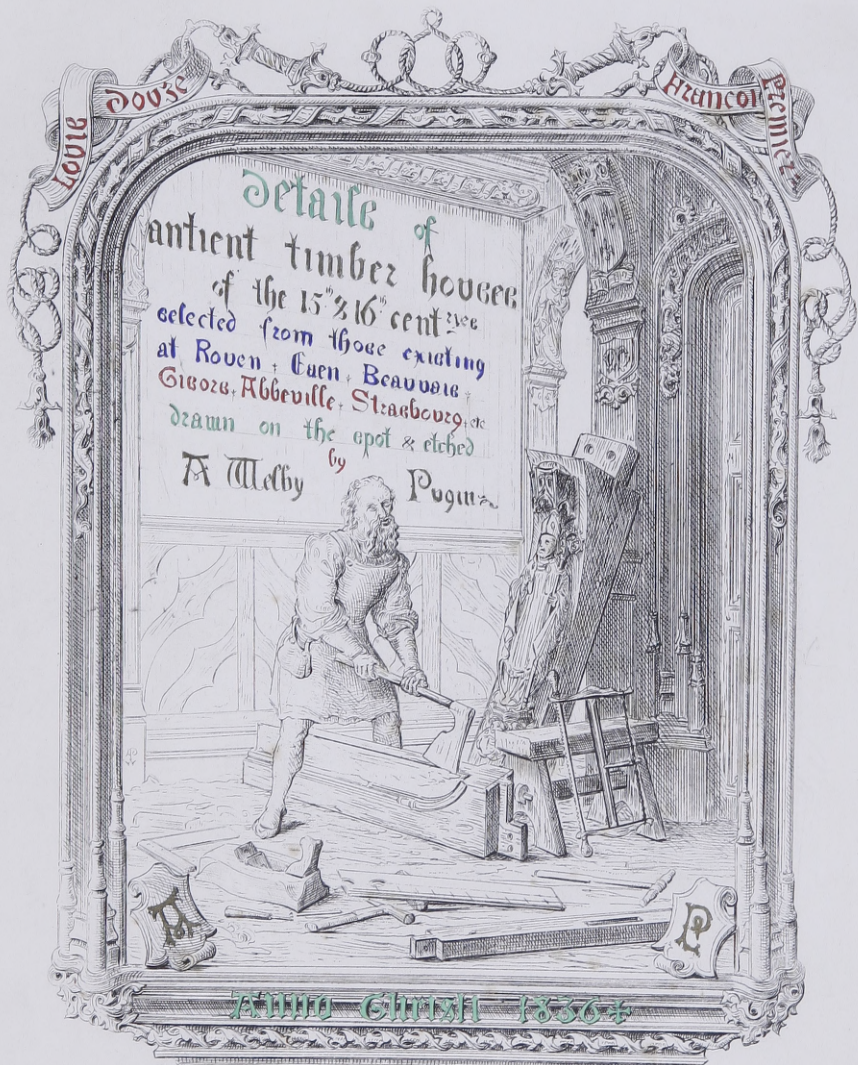 Louis Douse
Francois Premier
Details of
antient timber houses
of the 15th & 16th centries
selected from those existing
at Rouen, Caen, Beauvais,
Gisors, Abbeville, Strasbourg, etc
drawn on the spot & etched
by
A Welby Pugin
A P
Anno Christi 1836